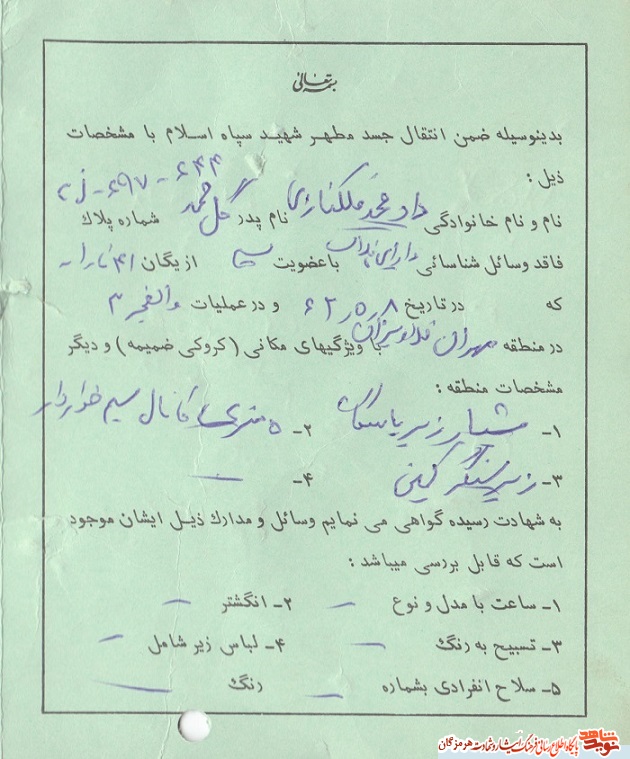 بسمه تعالی
بدینوسیله ضمن انتقال جسد مطهر شهید سپاه اسلام با مشخصات
ذیل :
نام و نام خانوادگی داد محمد ملکناری نام پدر گل محمد شماره پلاک ۶۴۴-۶۹۷-
فاقد وسائل شناسائی دارای پلاک با عضویت بسیج از یگان ۴۱
که در تاریخ ۶۲٫۵٫۸ و در عملیات والفجر ۳
در منطقه مهران با ویژگیهای مکانی (کروکی ضمیمه) و دیگر
مشخصات منطقه :
۱- شیار زیر پاسگاه ۲- ۵ متری کانال سیم خاردار
۳- زیر سنگر کمین ۴- —
به شهادت رسیده گواهی می نمایم وسائل و مدارک ذیل ایشان موجود
است که قابل بررسی میباشد :
۱- ساعت با مدل و نوع — ۲- انگشتر —
۳- تسبیح به رنگ — ۴- لباس زیر شامل —
۵- سلاح انفرادی بشماره — رنگ —
نوید شاهد
پایگاه اطلاع رسانی فرهنگ ایثار و شهادت هرمزگان